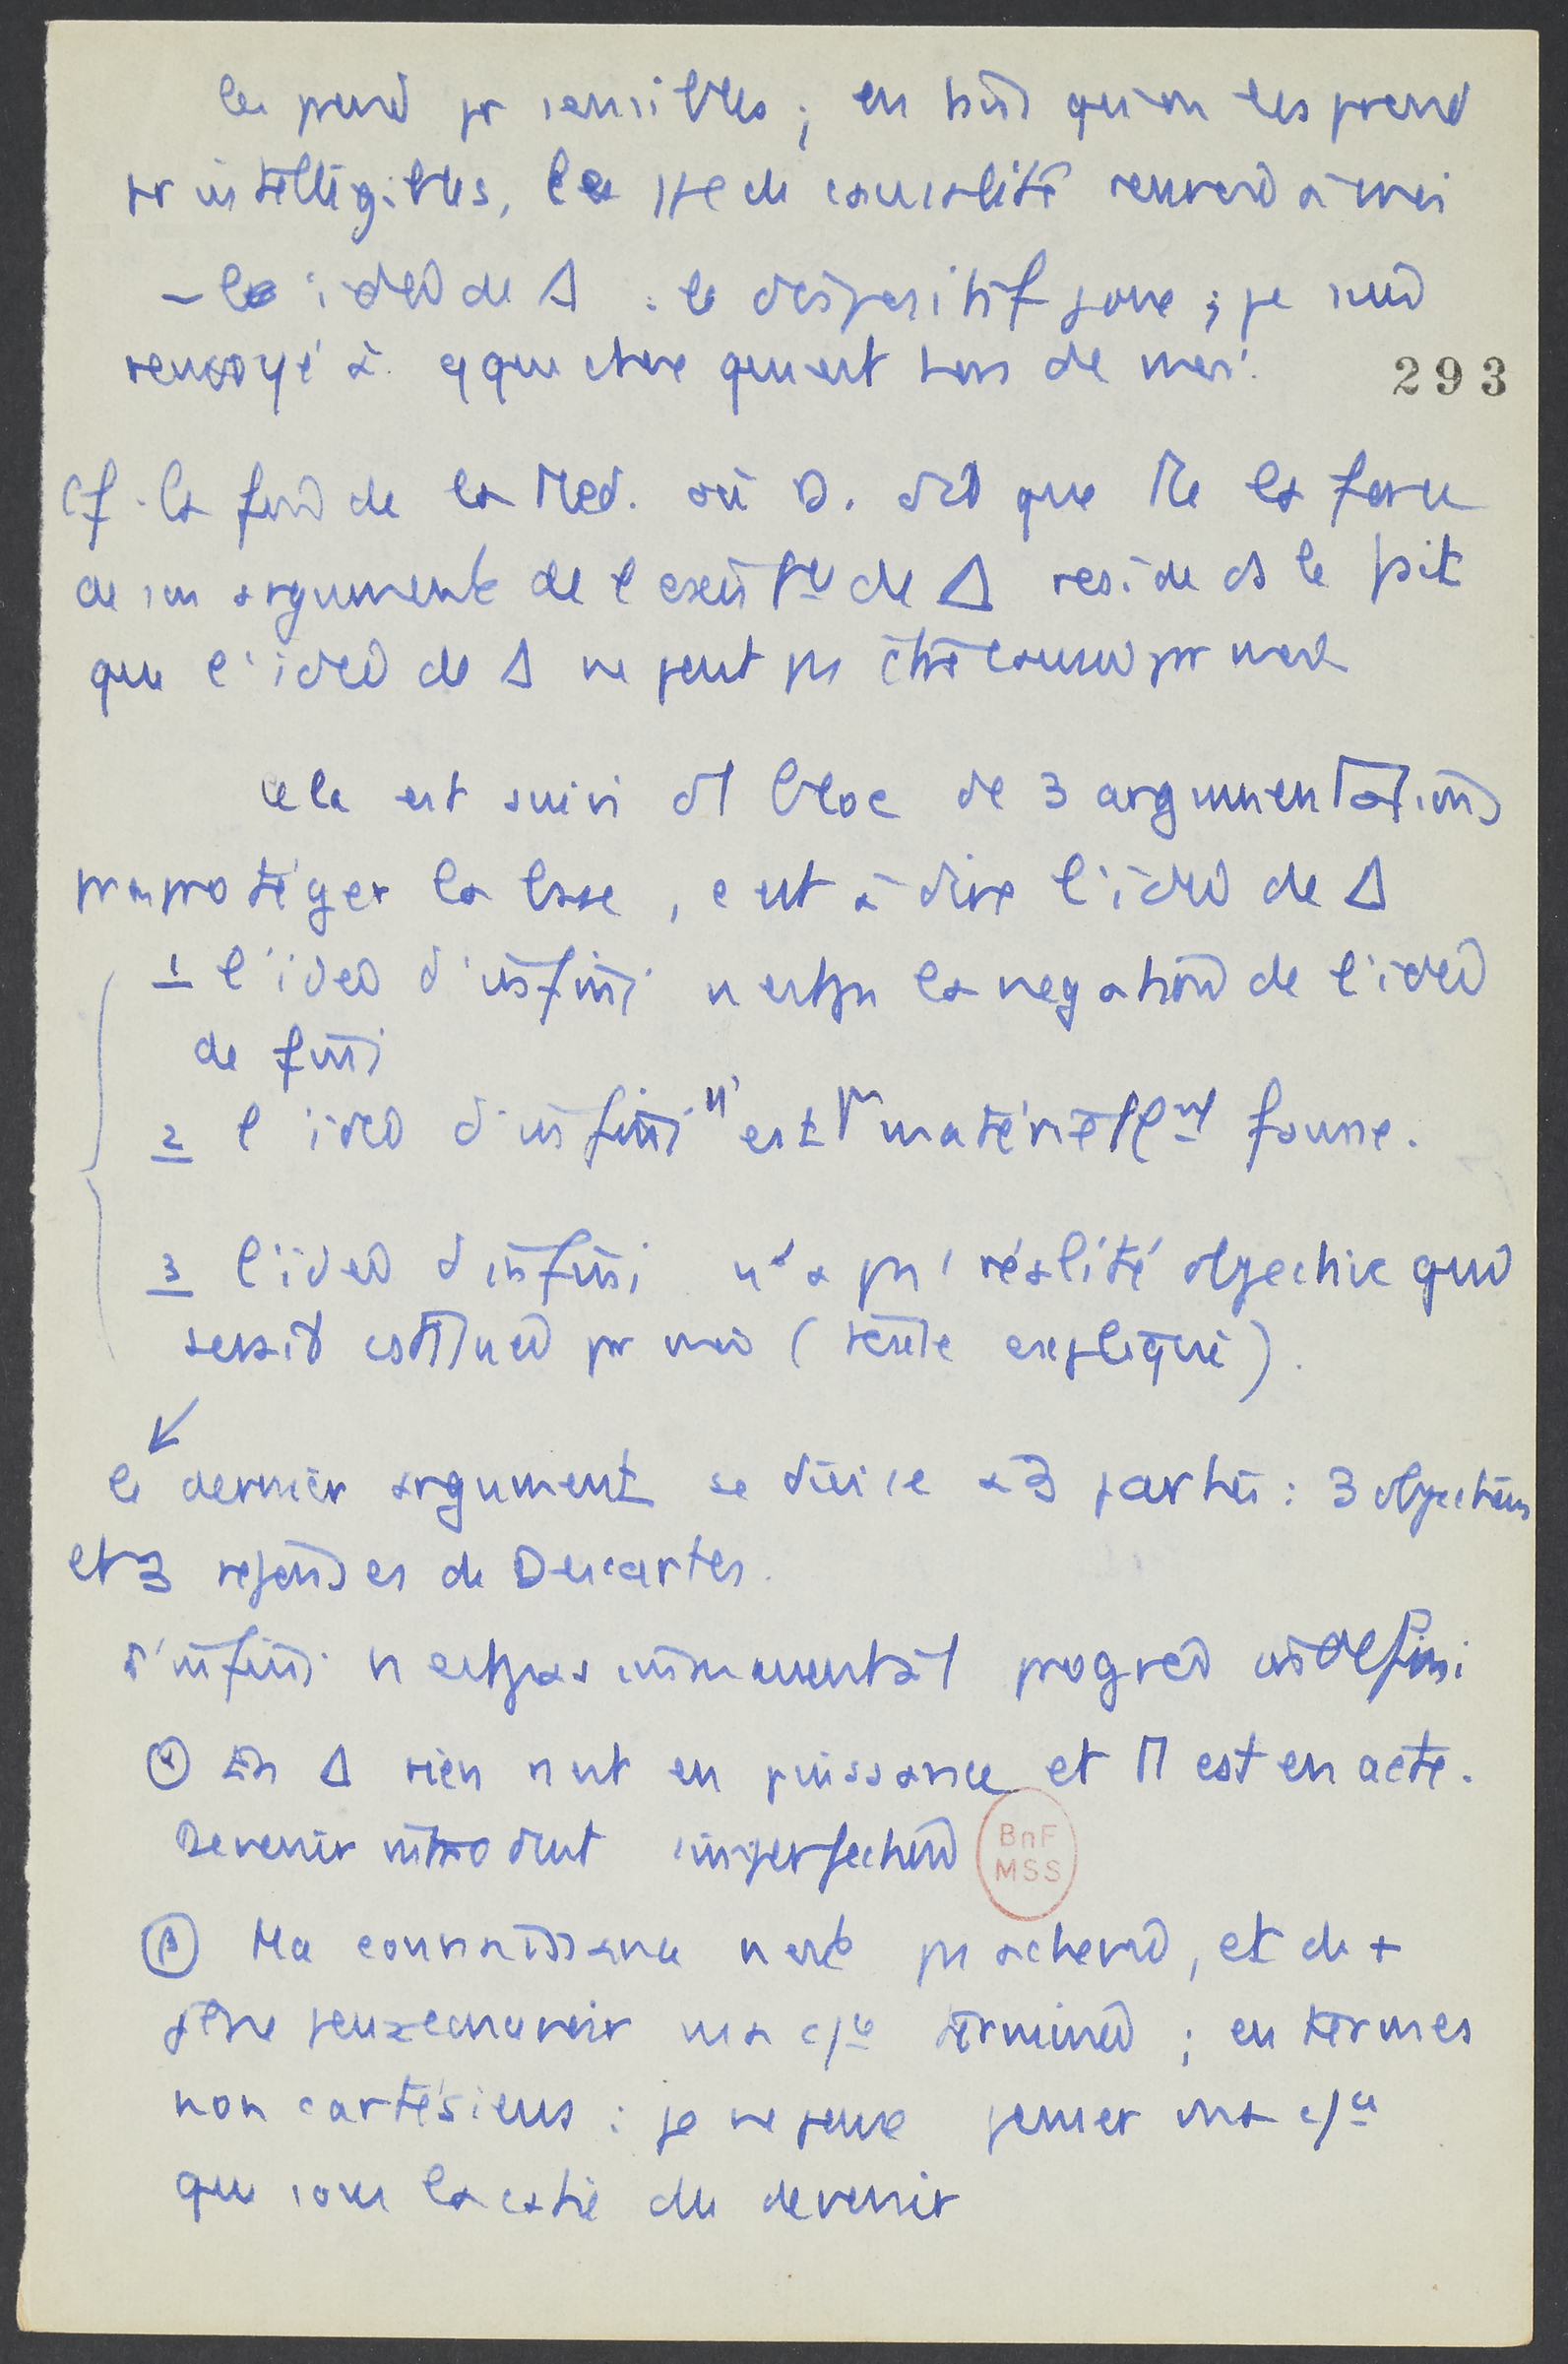 les prend pr sensibles ; en tant qu'on les prend
pr intelligibles, le ppe de causalité renvoie à moi
– l'idée de Δ : le dispositif joue ; je suis
renvoyé à qque chose qui est hors de moi.
293
Cf. la fin de la Med. où D. dit que tte la force
de son argument de l'existce de Δ reside ds le fait
que l'idée de Δ ne peut pas être causée par moi
cela est suivi d'1 bloc de 3 argumentations
pr protéger la base, c'est à dire l'idée de Δ
1 l'idée d'infini n'est pas la negation de l'idée
de fini
2 l'idée d'infini n'est pas matériellemt fausse.
3 l'idée d'infini n'a pas 1 réalité objective qui
serait constituée par moi (texte expliqué).
↙
le dernier argument se divise en 3 parties : 3 objections
et 3 reponses de Descartes.
L'infini n'est pas immanent à 1 progrès indefini
α En Δ rien n'est en puissance et Π est en acte.
Devenir introduit imperfection
BnF
MSS
β Ma connaissance n'est pas achevée, et de +
je ne peux concevoir ma cce terminée ; en termes
non cartésiens : je ne peux penser ma cce
que sous la catie du devenir